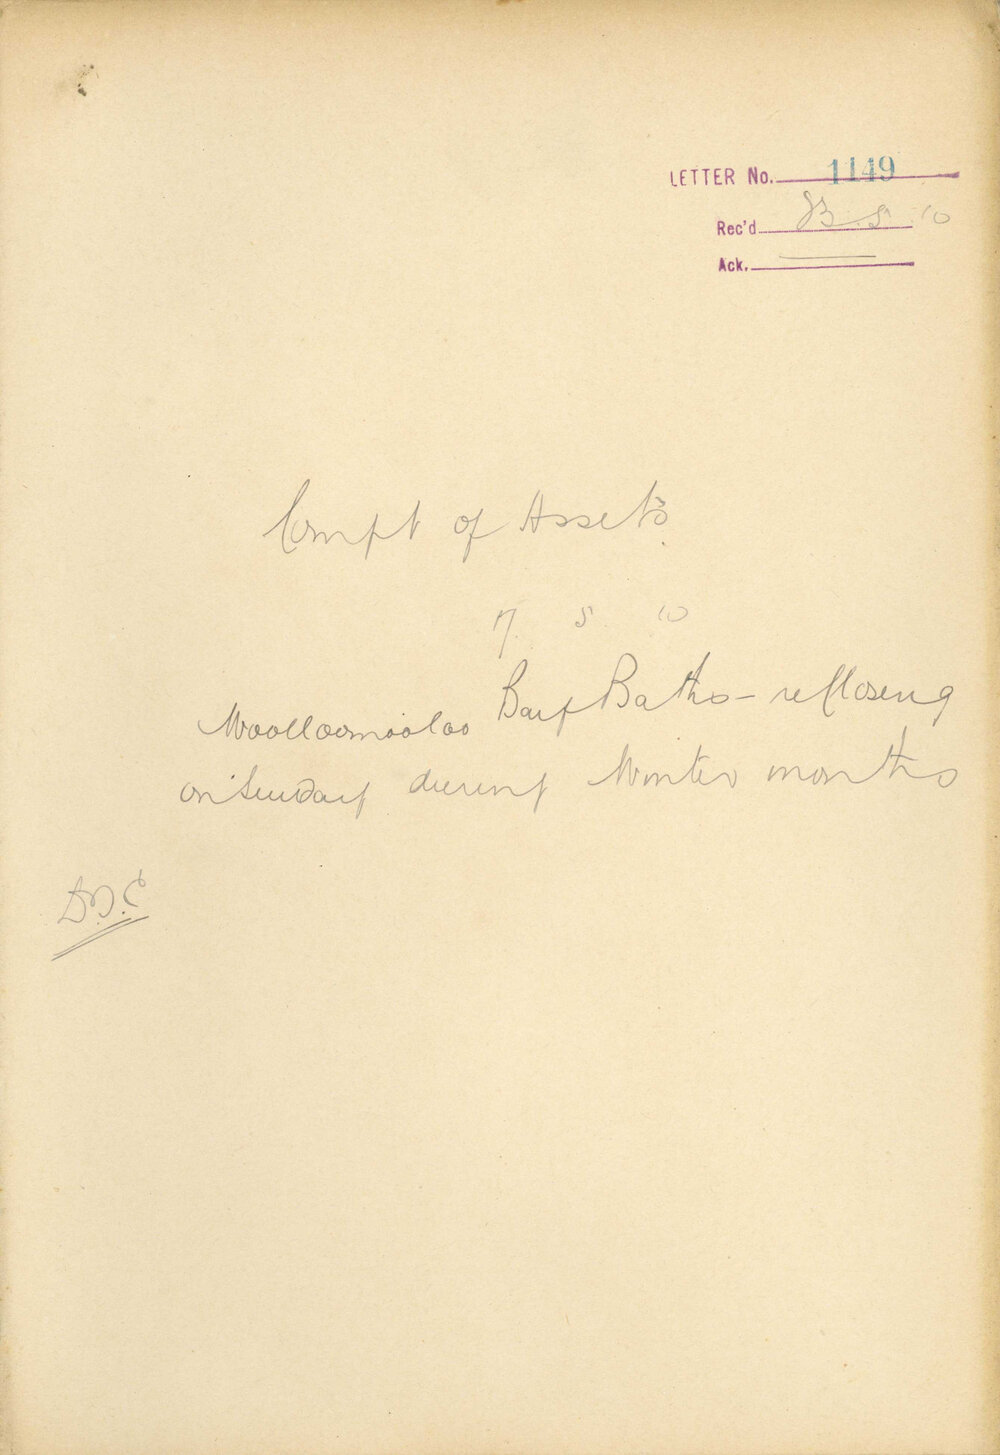 LETTER No. 1149
Rec'd 13.5.10
Ack.
Compt of Assets.
7 5 10
Woolloomooloo Bay Baths - re closing
on Sunday during Winter months